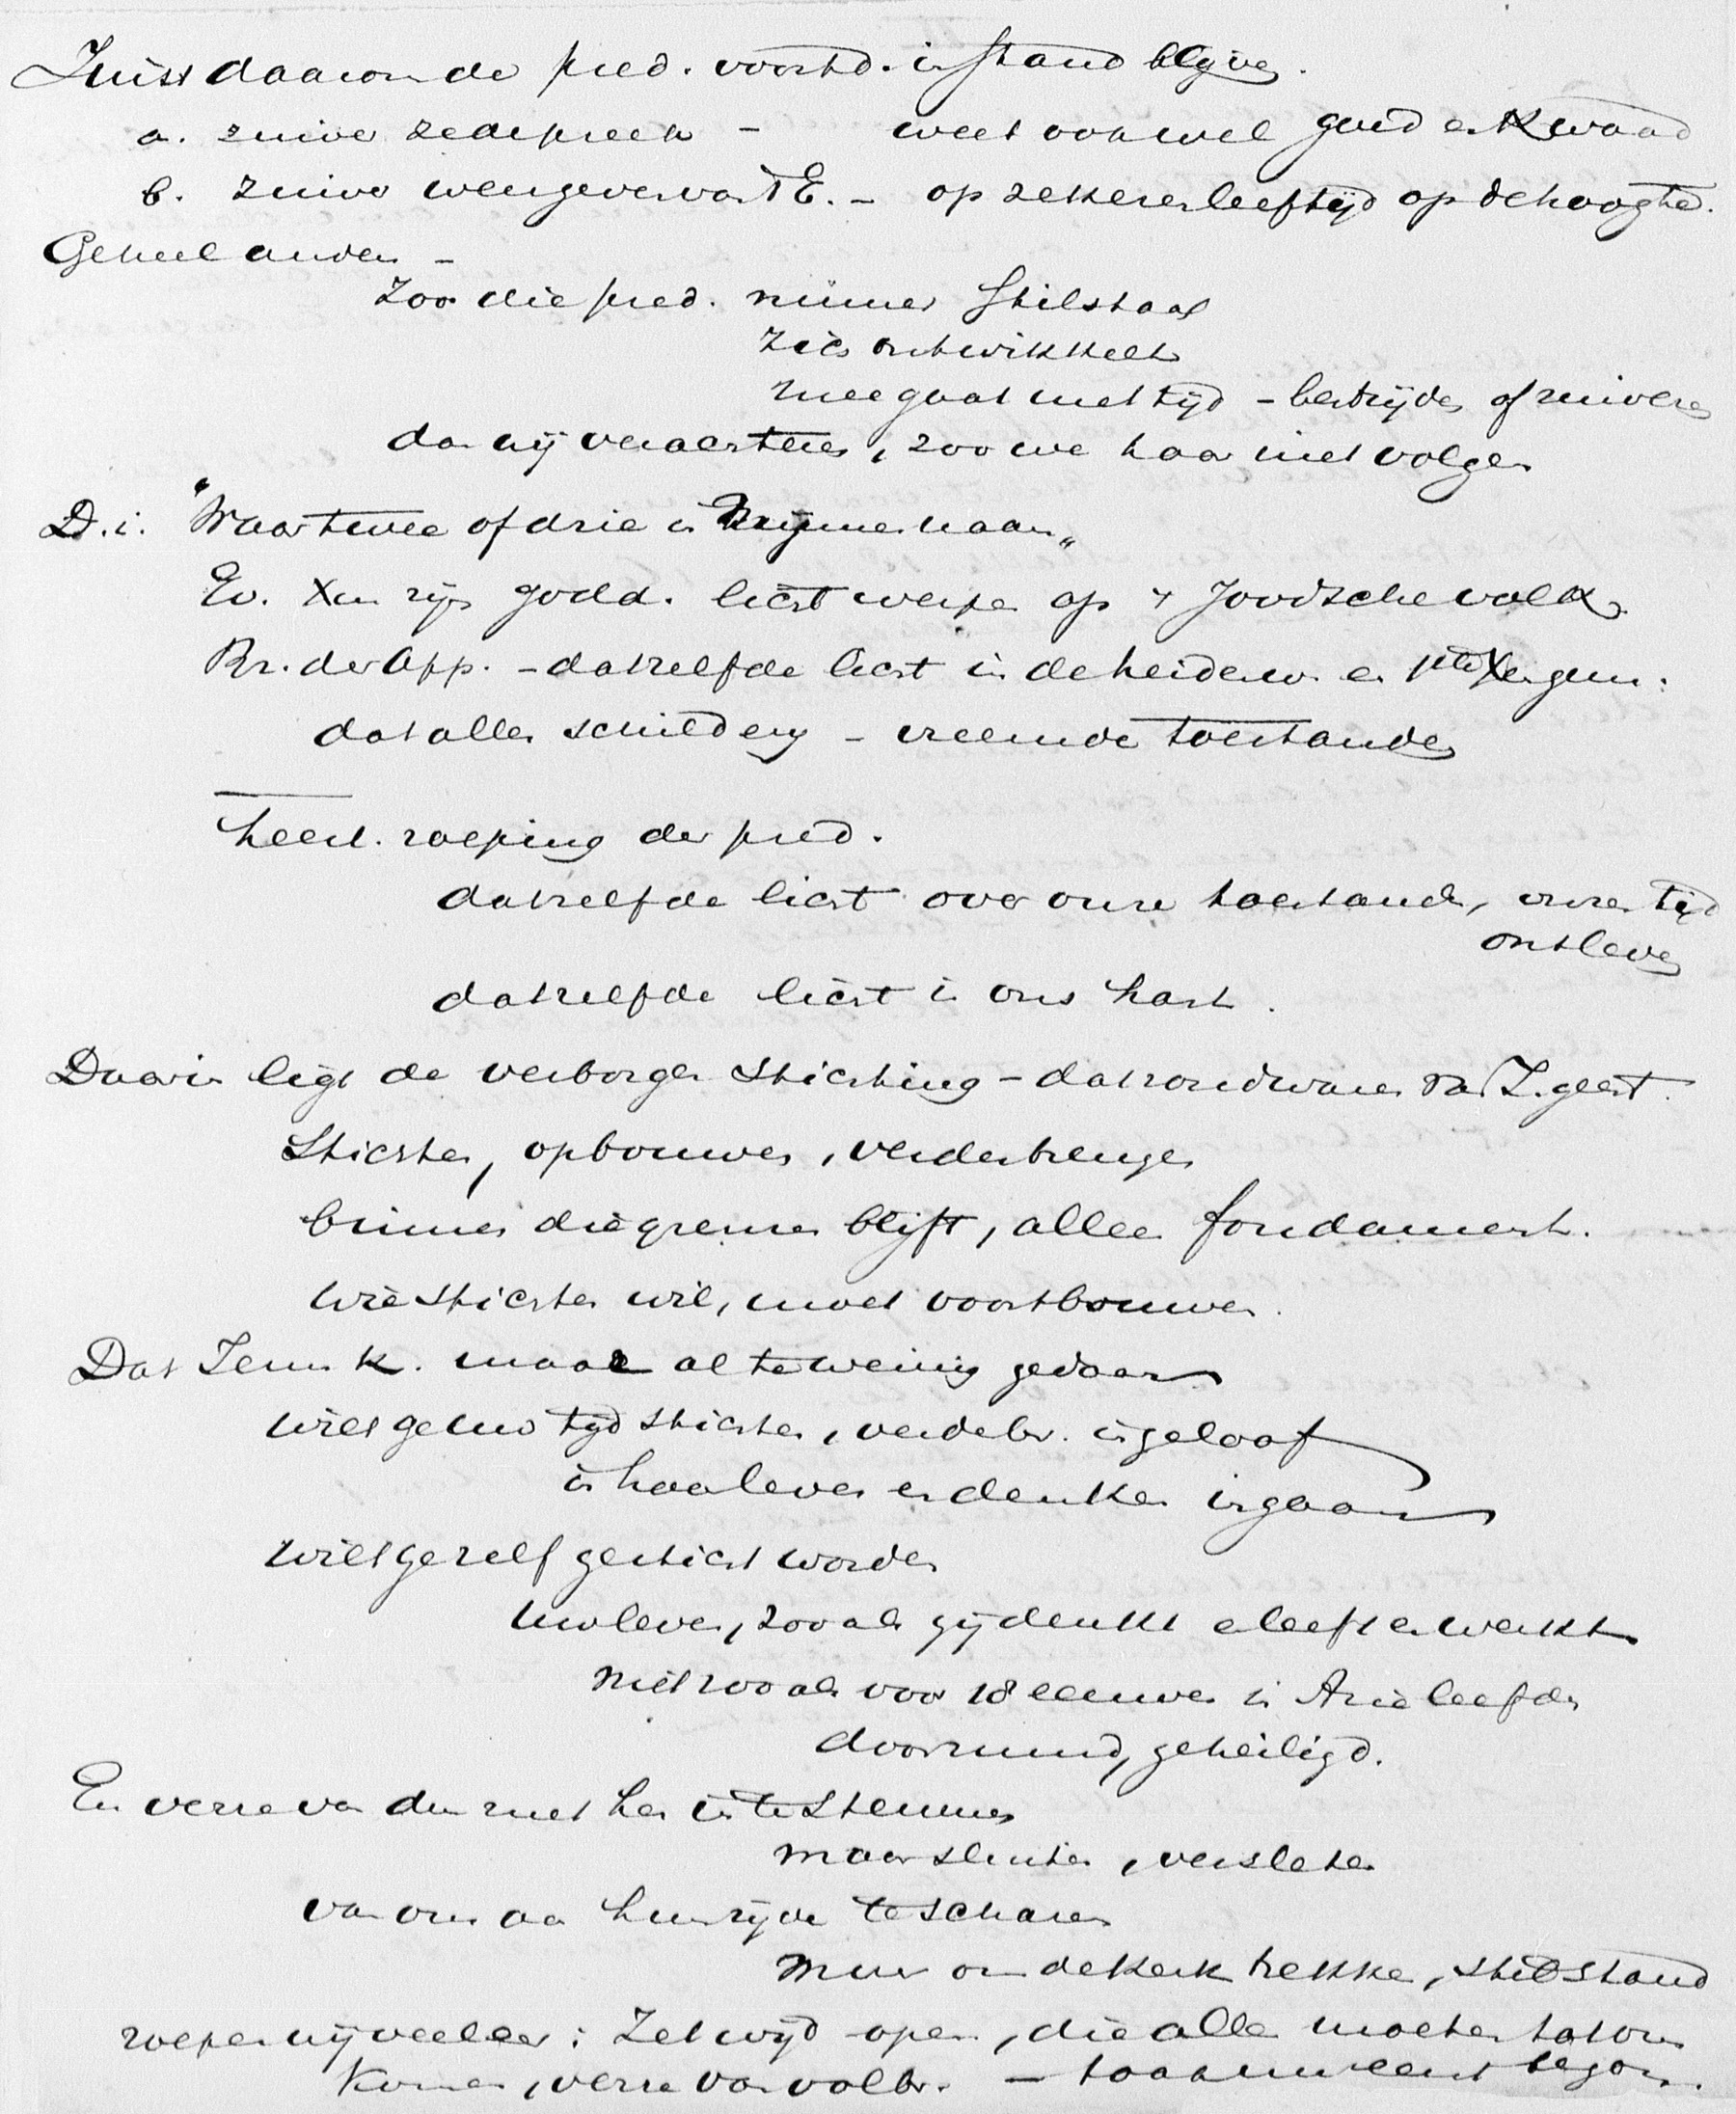 Juist daarom de pred. voortd. in stand blijven.
a. zuiver zedepreek - weet ook wel goed en kwaad
b. zuiver weergever van 't E. - op zekeren leeftijd op de hoogte.
Geheel anders -
Zoo die pred. nimmer stilstaat
zich ontwikkelt
meegaat met tijd - bestrijden of zuiveren
dan wij verachteren, zoo we haar niet volgen
D.i. "Waar twee of drie in Mijnen naam"
Ev. Xus zijn godd. licht werpen op 't Joodsche volk
Br. der App. - datzelfde licht in de heidenw. en 1ste Xen gem:
dat alles schilderij - vreemde toestanden
heerl. roeping der pred.
datzelfde licht over onze toestanden, onzen tijd
ons leven
datzelfde licht in ons hart.
Daarin ligt de verborgen stichting - dat rondwaren van Z. geest.
Stichten, opbouwen, verderbrengen
binnen die grenzen blijft, alleen fondament.
Wie stichten wil, moet voortbouwen.
Dat Jezus k. maar al te weinig gedaan
wilt ge uw tijd stichten, verderbr. in geloof
in haar leven en denken ingaan
wilt ge zelf gesticht worden
Uw leven, zooals gij denkt en leeft en werkt
niet zooals voor 18 eeuwen in Azië leefden
doorzuurd, geheiligd.
En verre van den met hen in te stemmen
maar sluiten, versleten
van ons aan hun zijde te scharen
muur om de kerk trekken, stilstand
roepen wij veeleer: Zet wijd open, die allen moeten tot ons
komen, verre van volbr. - toch nu eerst begon.